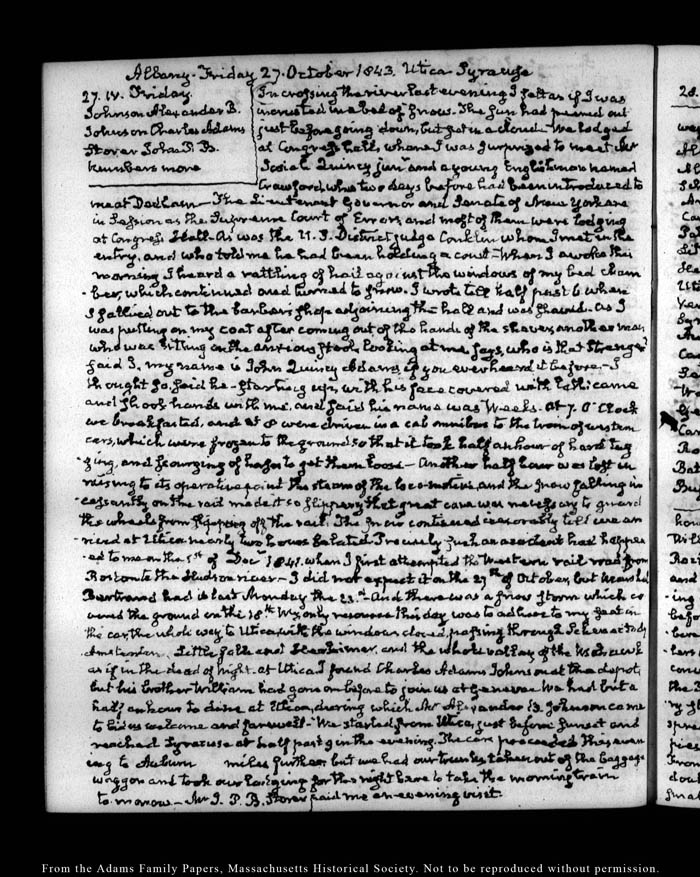 Albany. Friday 27. October 1843. Utica Syracuse
27. IV. Friday.
Johnson Alexander B.
Johnson Charles Adams
Storer John P. B.
numbers more
In crossing the river last evening I felt as if I was
incrusted in a bed of snow. The Sun had peeped out
just before going down, but set in a cloud. We lodged
at Congress hall, where I was surprized to meet Mr
Josiah Quincy junr. and a young Englishman named
Crawford, who two days before had been introduced to
me at Dedham— The Lieutenant Governor and Senate of New York are
in Session as the Supreme Court of Errors, and most of them were lodging
at Congress Hall. As was the U. S. District judge Conklin whom I met in the
entry, and who told me he had been holding a court— When I awoke this
morning I heard a rattling of hail against the windows of my bed cham
-ber, which continued and turned to snow. I wrote till half past 6 when
I sallied out to the barber's shop adjoining the hall and was shaved. As I
was putting on my coat after coming out of the hands of the shaver, another man,
who was sitting on the anxious stool, looking at me, says, who is that Stranger?
said I, my name is John Quincy Adams, if you ever heard it before— I
thought so, said he— starting up, with his face covered with lather came
and shook hands with me, and said his name was Weeks. At 7. O'Clock
we breakfasted, and at 8 were driven in a cab omnibus to the train of western
cars, which were frozen to the ground so that it took half an hour of hard tug
-ging, and scourging of horses to get them loose— Another half hour was lost in
raising to its operative point the steam of the loco-motive, and the snow falling in
cessantly on the rail made it so slippery that great care was necessary to guard
the wheels from slipping off the rail. The snow continued until we ar
rived at Utica nearly two hours belated. Precisely such an accident had happen
-ed to me on the 1st of Decr 1841. when I first attempted the Western rail road from
Boston to the Hudson river— I did not expect it on the 27th of October, but
Bertrand had it last Monday the 23d.— And there was a snow storm which co
vered the ground on the 18th My only resource this day was to adhere to my seat in
the car, the whole way to Utica, with the windows closed, passing through Schenectady
Amsterdam, Little falls and Herkimer, and the whole valley of the Mohawk
as if in the dead of night. At Utica I found Charles Adams Johnson at the depot,
but his brother William had gone on before to join us at Geneva. We had but a
half an hour to dine at Utica, during which Mr Alexander B. Johnson came
to bid us welcome and farewell— We started from Utica, just before sunset and
reached Syracuse at half past 9 in the evening. The cars proceeded this even
ing to Auburn miles further but we had our trunks taken out of the baggage
waggon and took our lodging for the night here to take the morning train
to morrow— Mr J. P. B. Storer paid me an evening visit.
28.
From the Adams Family Papers, Massachusetts Historical Society. Not to be reproduced without permission.